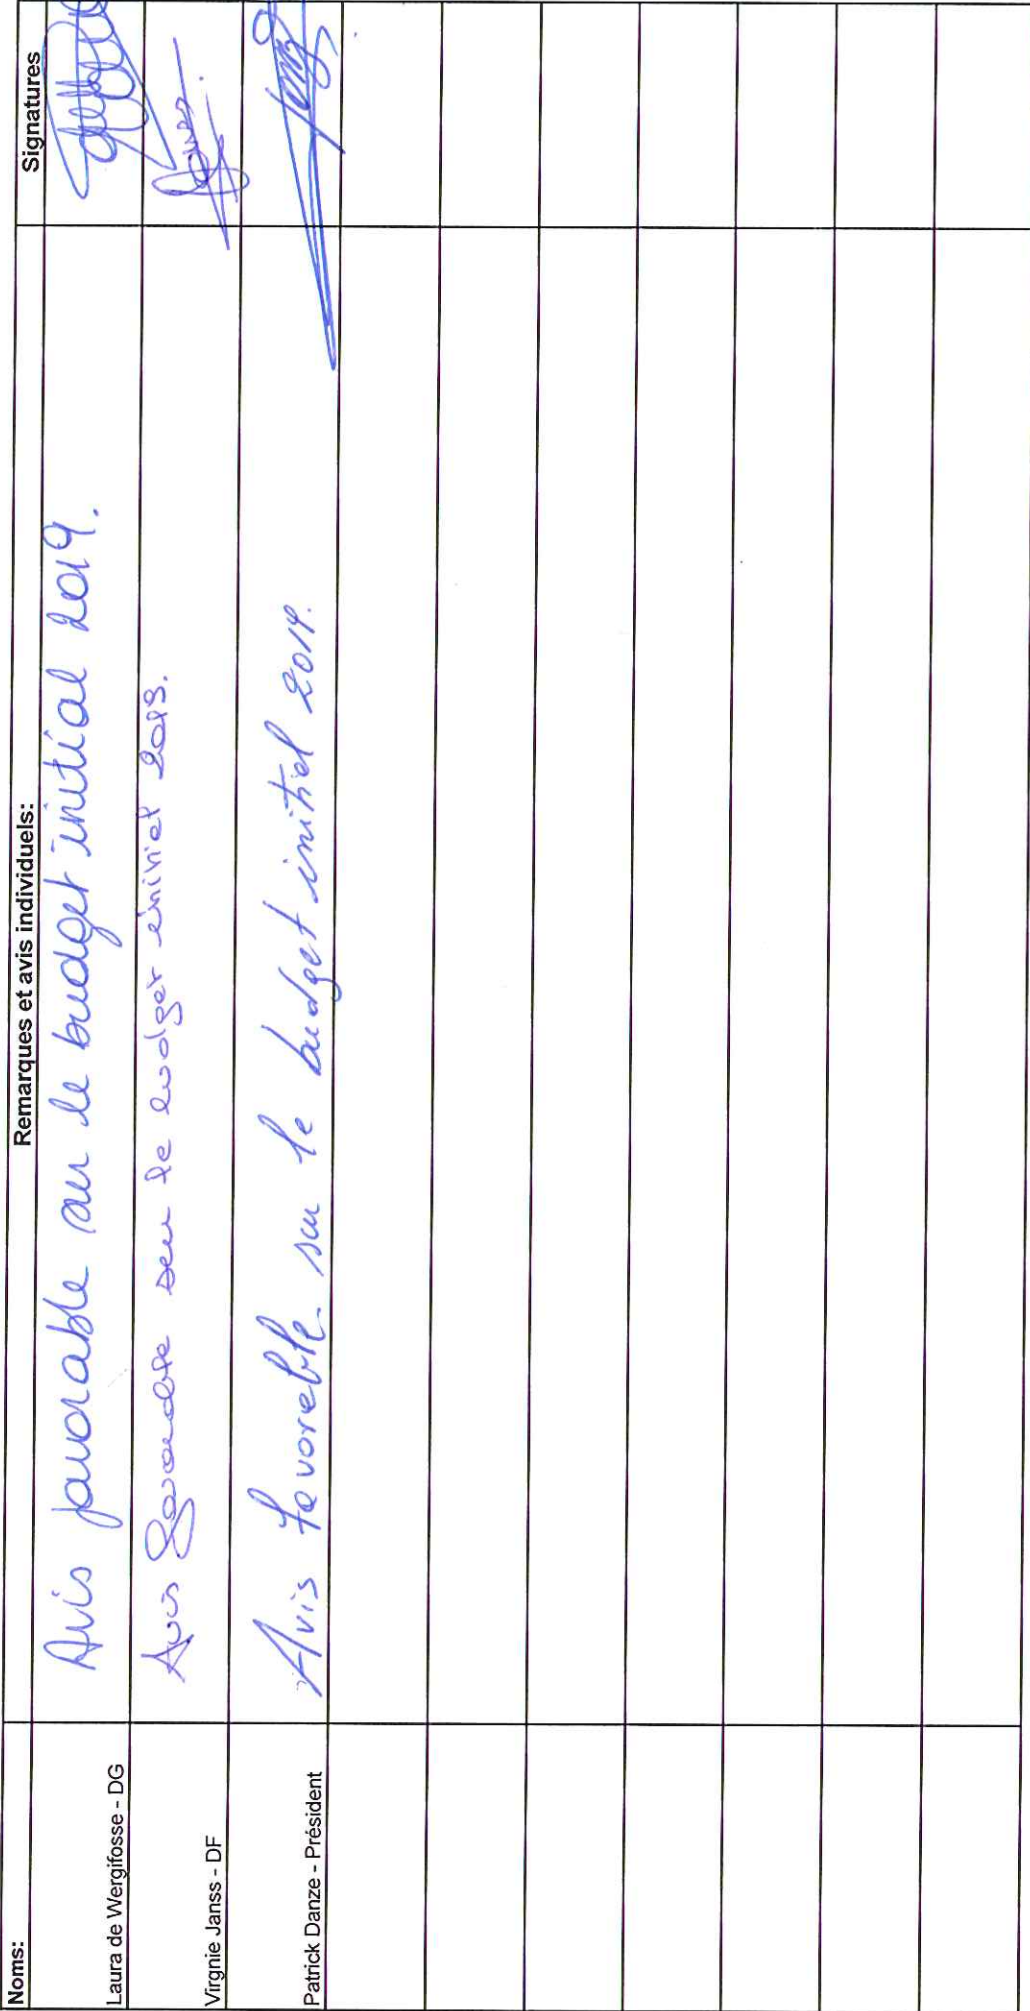 Noms: Remarques et avis individuels: Signatures
Laura de Wergifosse - DG Avis favorable sur le budget initial 2019.
Virgnie Janss - DF Avis favorable sur le budget initial 2019.
Patrick Danze - Président Avis favorable sur le budget initial 2019.